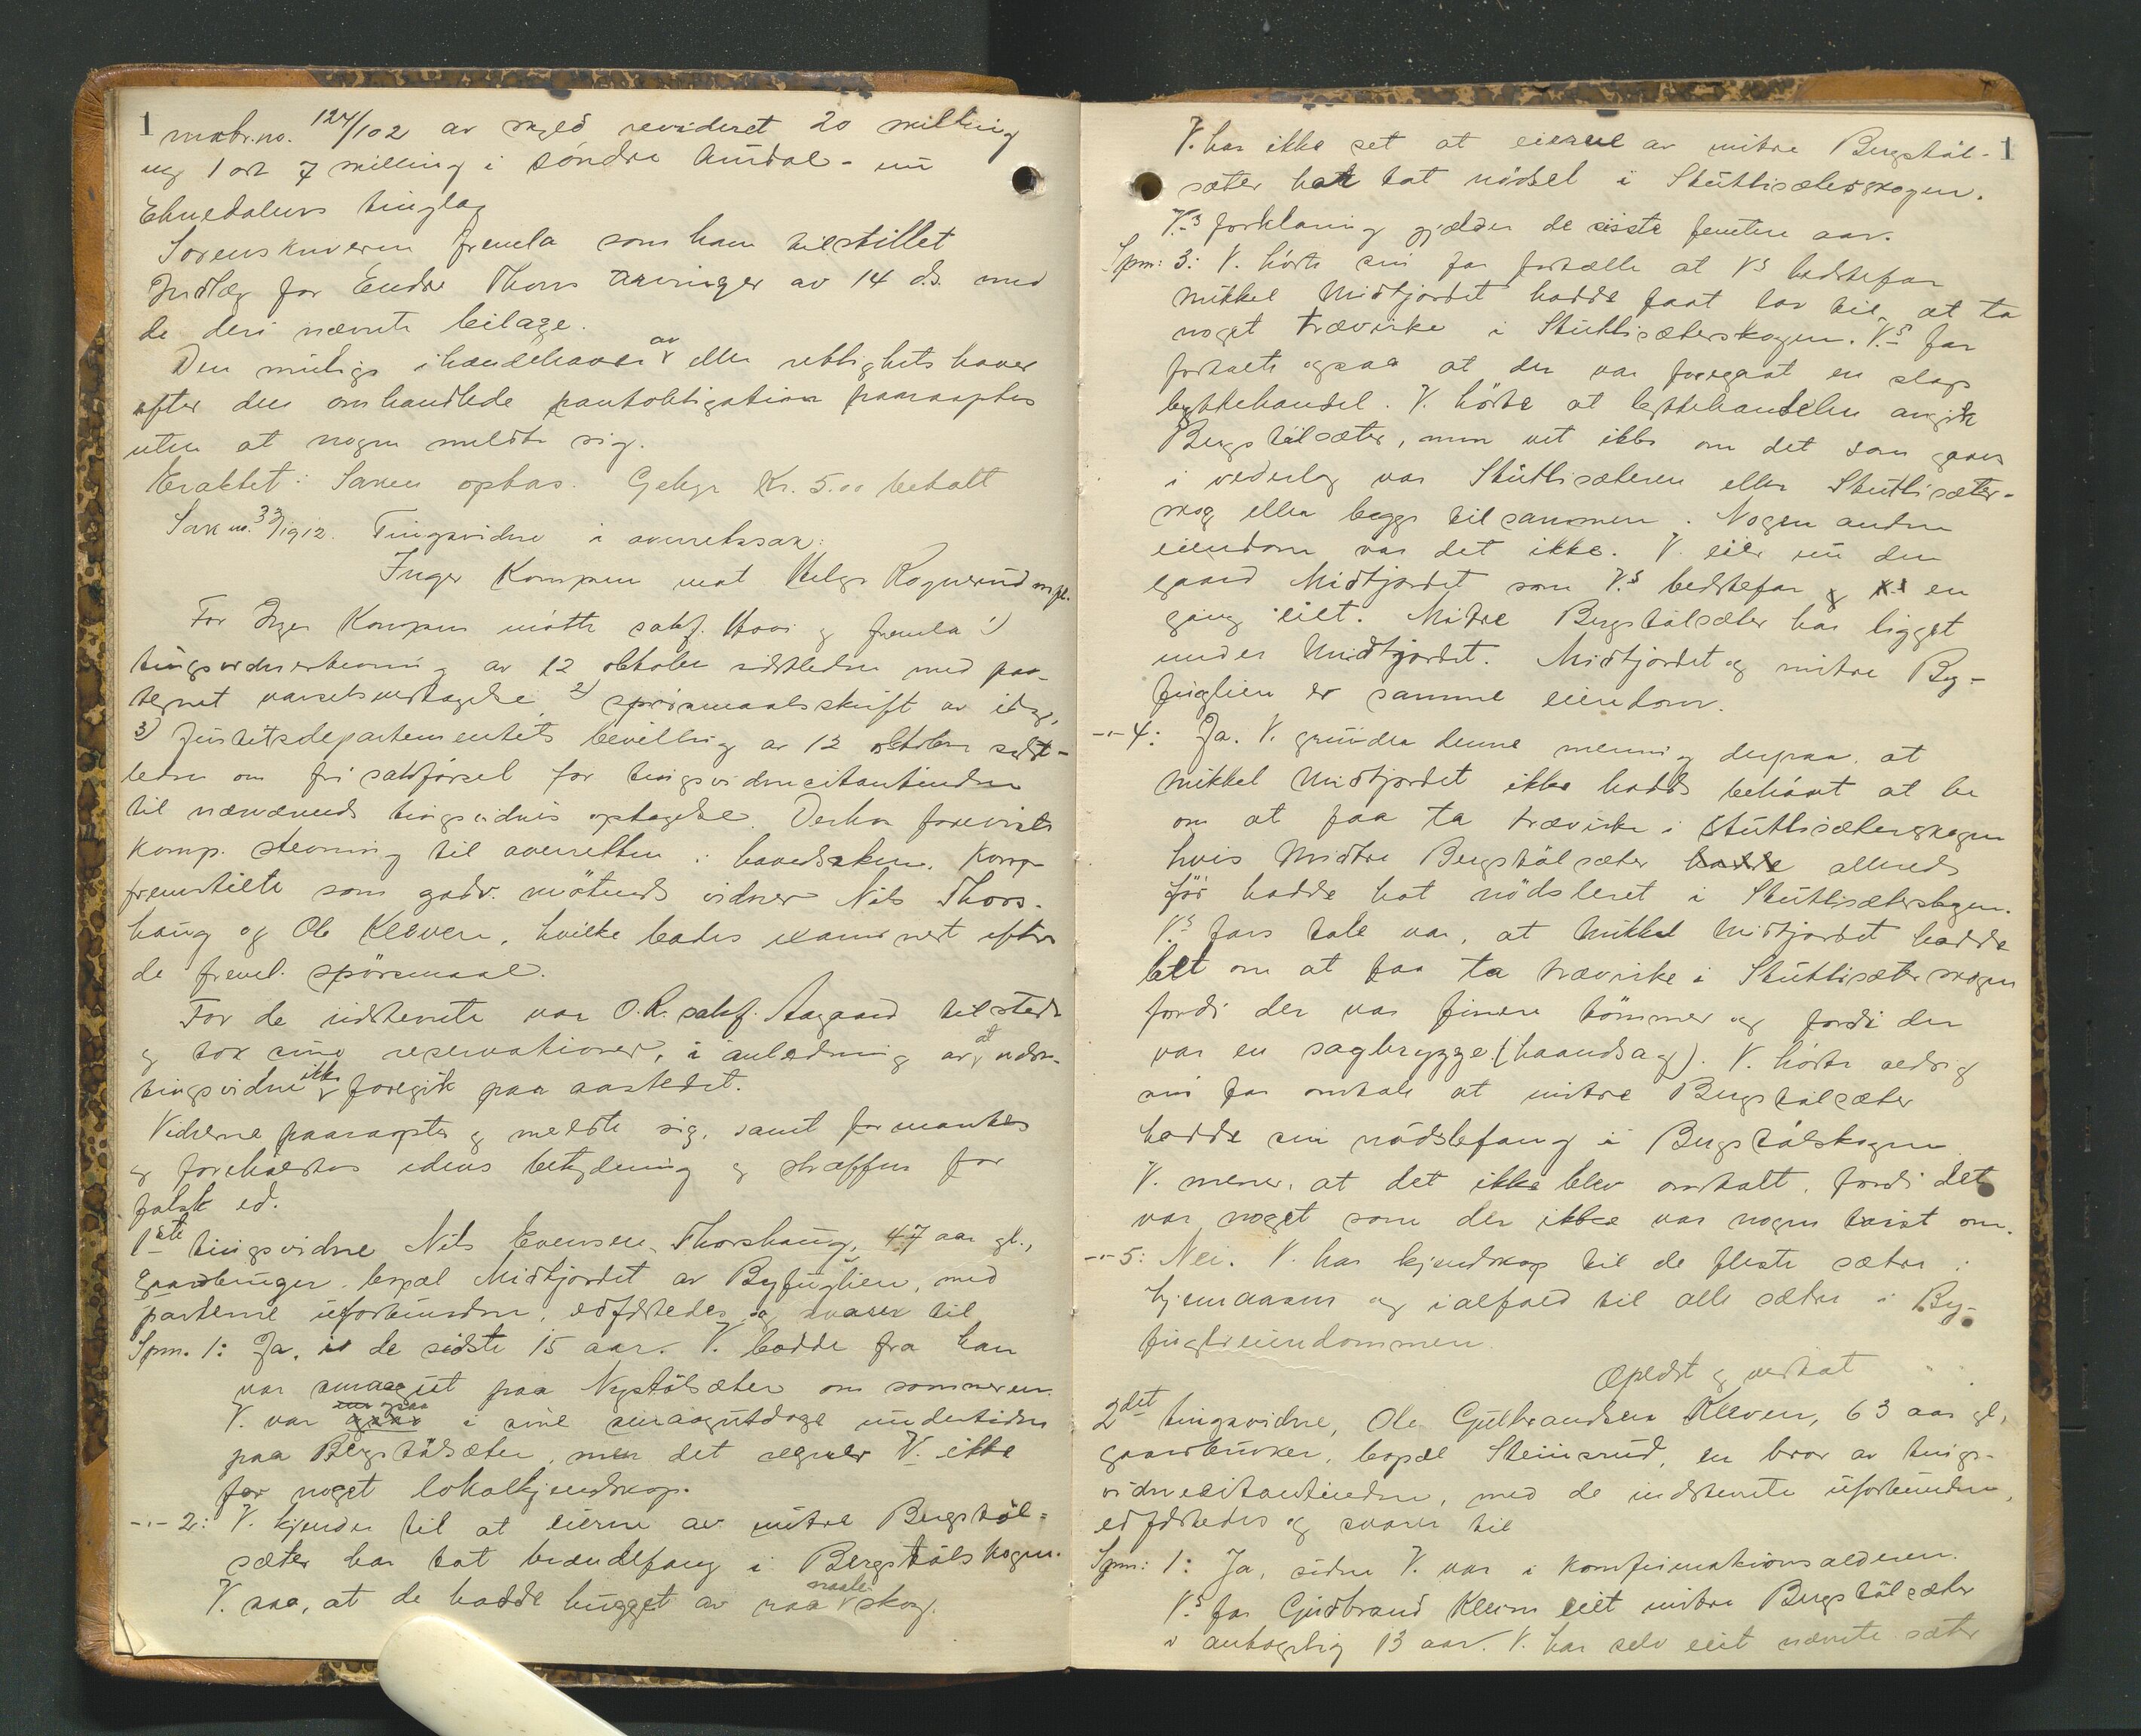 1 matr.no. 124/102 av skyld revideret 20 skilling
og 1 ort 7 skilling i søndre Aurdal - nu
Etnedalens tinglag
Sorenskriveren fremla som ham tilstillet
Indlæg for Endre Thons arvinger av 14 ds. med
de deri nævnte bilage.
Den mulige ihændehaver av eller rettighetshaver
efter den omhandlede pantobligation paaraaptes
uten at nogen meldte sig.
Eraktet: Saken optas. Gebyr Kr. 5.00 betalt
Sak no. 33/1912. Tingsvidne i overretssak:
Inger Kompen mot Helge Rognerud m.fl.
For Inger Kompen møtte sakf. Hovi og fremla 1)
tingsvidnestevning av 12 oktober sidstleden med paa-
tegnet varselsvedtagelse 2) spørsmaalsskrift av idag,
3) Justitsdepartementets bevilling av 12 oktober sidst-
leden om fri sakførsel for tingsvidnecitantinden
til nærværende tingsvidnes optagelse. Derhos forevistes
komp. stevning til overretten i hovedsaken. Komp.
fremstilte som godv. møtende vidner Nils Thors-
haug og Ole Kleven, hvilke bades examinert efter
de freml. spørsmaal.
For de indstevnte var O.R. sakf. Aagaard tilstede
og tok sine reservationer, i anledning av, at uden-
tingsvidne ikke foregik paa aastedet.
Vidnerne paaraaptes og meldte sig, samt formantes
og foreholdtes edens betydning og straffen for
falsk ed.
1ste tingsvidne Nils Evensen Thorshaug, 47 aar gl.,
gaardbruger, bopæl Midtjordet av Byfuglien, med
parterne uforbunden, edfæstedes og svarer til
Spm. 1: Ja, i de sidste 15 aar. V. bodde fra han
var smaagut paa Nystølsæter om sommeren.
V. var ogsaa i sine smaagutdage undertiden
paa Bergstølsæter, men det regner V. ikke
for noget lokalkjendskap.
-"- 2: V. kjender til at eierne av mitre Bergstøl-
sæter har tat brændefang i Bergstølskogen.
V. saa, at de hadde hugget av raa naaleskog.
V. har ikke set at eierne av mitre Bergstøl- 1
sæter hat tat nødsel i Stutlisæterskogen.
V.s forklaring gjælder de sisste femten aar.
Spm: 3: V. hørte sin far fortælle at Vs bedstefar
Mikkel Midtjordet hadde faat lov til at ta
noget trævirke i Stutlisæterskogen. V.s far
fortalte ogsaa at der var foregaat en slags
byttehandel. V. hørte at byttehandelen angik
Bergstølsæter, men vet ikke om det som gaves
i vederlag var Stutlisæteren eller Stutlisæter-
skog eller begge tilsammen. Nogen anden
eiendom var det ikke. V. eier nu den
gaard Midtjordet som V.s bedstefar en
gang eiet. Mitre Bergstølsæter har ligget
under Midtjordet. Midtjordet og mitre By-
fuglien er samme eiendom.
-"- 4: Ja. V. grunder denne mening derpaa, at
Mikkel Midtjordet ikke hadde behøvt at be
om at faa ta trævirke i Stutlisæterskogen
hvis Midtre Bergstølsæter hadde allerede
før hadde hat nødsleret i Stutlisæterskogen.
V.s fars tale var, at Mikkel Midtjordet hadde
bett om at faa ta trævirke i Stutlisæterskogen
fordi der var finere tømmer og fordi der
var en sagbrygge (haandsag). V. hørte aldrig
sin far omtale at mitre Bergstølsæter
hadde sin nødslefang i Bergstølskogen.
V. mener, at det ikke blev omtalt, fordi det
var noget som der ikke var nogen tvist om.
-"- 5: Nei. V. har kjendskap til de fleste sætre i
hjemaasen og ialfald til alle sætre i By-
fuglieiendommen.
Oplæst og vedtat
2det tingsvidne, Ole Gulbrandsen Kleven, 63 aar gl,
gaardbruker, bopæl Steinsrud, en bror av tings-
vidnecitantinden, med de indstevnte uforbunden,
edfæstedes og svarer til
Spm: 1: Ja, siden V. var i konfirmationsalderen.
V.s far Gudbrand Kleven eiet mitre Bergstølsæter
i antagelig 13 aar. V. har selv eiet nævnte sæter